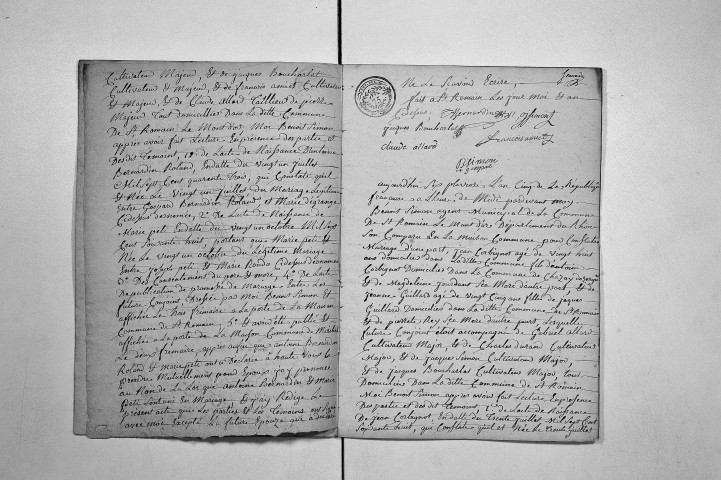 Cultivateur Majeur, et de jaques Boucharlat
Cultivateur et Majeur, et de françois aunet Cultivateur
et Majeur, et de Claude allard Tallieur de pierre
Majeur Tout domicilies Dans La ditte Commune
De St Romain Le Montdor, Moi Benoit Simon
appres avoir fait Lecture En presence des parties et
Des dit Temoint, 1° de Lacte de Naissance Dantoine
Bernardin Roland, En datte du Vingt un juillet
Mil Sept Cent quarante Trois, qui Constate quil
Et Née Le Vingt un juillet du Mariage Legitime
Entre Gaspard Bernardin Roland et Marie degrange
Cidessus denomée, 2° de Lacte de Naissance de
Marie peti En datte du Vingt un octobre Mil Sept
Cent Soixante huit, portant que Marie peti et
Née Le Vingt un octobre du Legitime Mariage
Entre joseph peti et Marie Cidessus denomée
3° Des Consentement du pere et mere, 4° de Lacte
De publication de promesse de Mariage Entre Les
future Conjoint Dressée par Moi Benoit Simon et
affichée Le frimaire a La porte de La Maison
Commune de St Romain, 5° et avoir été publié et
affichée a La porte de La Maison Commune de
Le deux frimaire, appres aussi que antoine Bernardin
Roland et Marie peti ont Déclaré a haute Voix Se
prendre Mutuellement pour Epoux, jay prononcé
au Nom de La Loi que antoine Bernardin et Marie
Peti Sont uni En Mariage et jay Redigé Le
présent acte que Les parties et Les Temoins ont Signé
avec moi Excepté La future Epouze qui a déclaré
Ne Le Savoir Ecrire,
fait a St Romain Les jour Moi et an
Cidessus
jaques Boucharlat françois aunet
claude allard
BSimon
aujourdhui Sept pluviose Lan Cinq de La République
française a Lheure de Midi pardevant moy
Benoit Simon agent Municipal de La Commune
De St Romain Le Mont dor Département du Rhone
Son Comparu En La Maison Commune pour Contracter
Mariage Dune part, jean Carbignot age de Vingt huit
ans domicilies dans La ditte Commune fils dantoine
Carbignot Domicilies Dans La Commune de Chazay dazergue
et de Magdeleine jourdant Sa Mere Dautre part, Et de
jeanne Guillard age de Vingt Cinq ans filles de jaques
Guillard Domicilies dans La ditte Commune de St Romain
et de pierrete Rey Sa Mere dautre part, Lesquelle
future Conjoint étoit accompagné de Gabriel allard
Cultivateur Major, et de Charle durand Cultivateur
Major, et de jaques Simon Cultivateur Major,
Et de jaques Boucharlas Cultivateur Major, tous
Domicilies Dans La ditte Commune de St Romain
Moi Benoit Simon appres avoir fait Lecture En presence
Des parties et des dit Temoint, 1° de Lacte de Naissance
de jean Carbignot, En datte du Trente juillet Mil Sept Cent
Soixante huit, qui Constate quil et Née Le Trente juillet